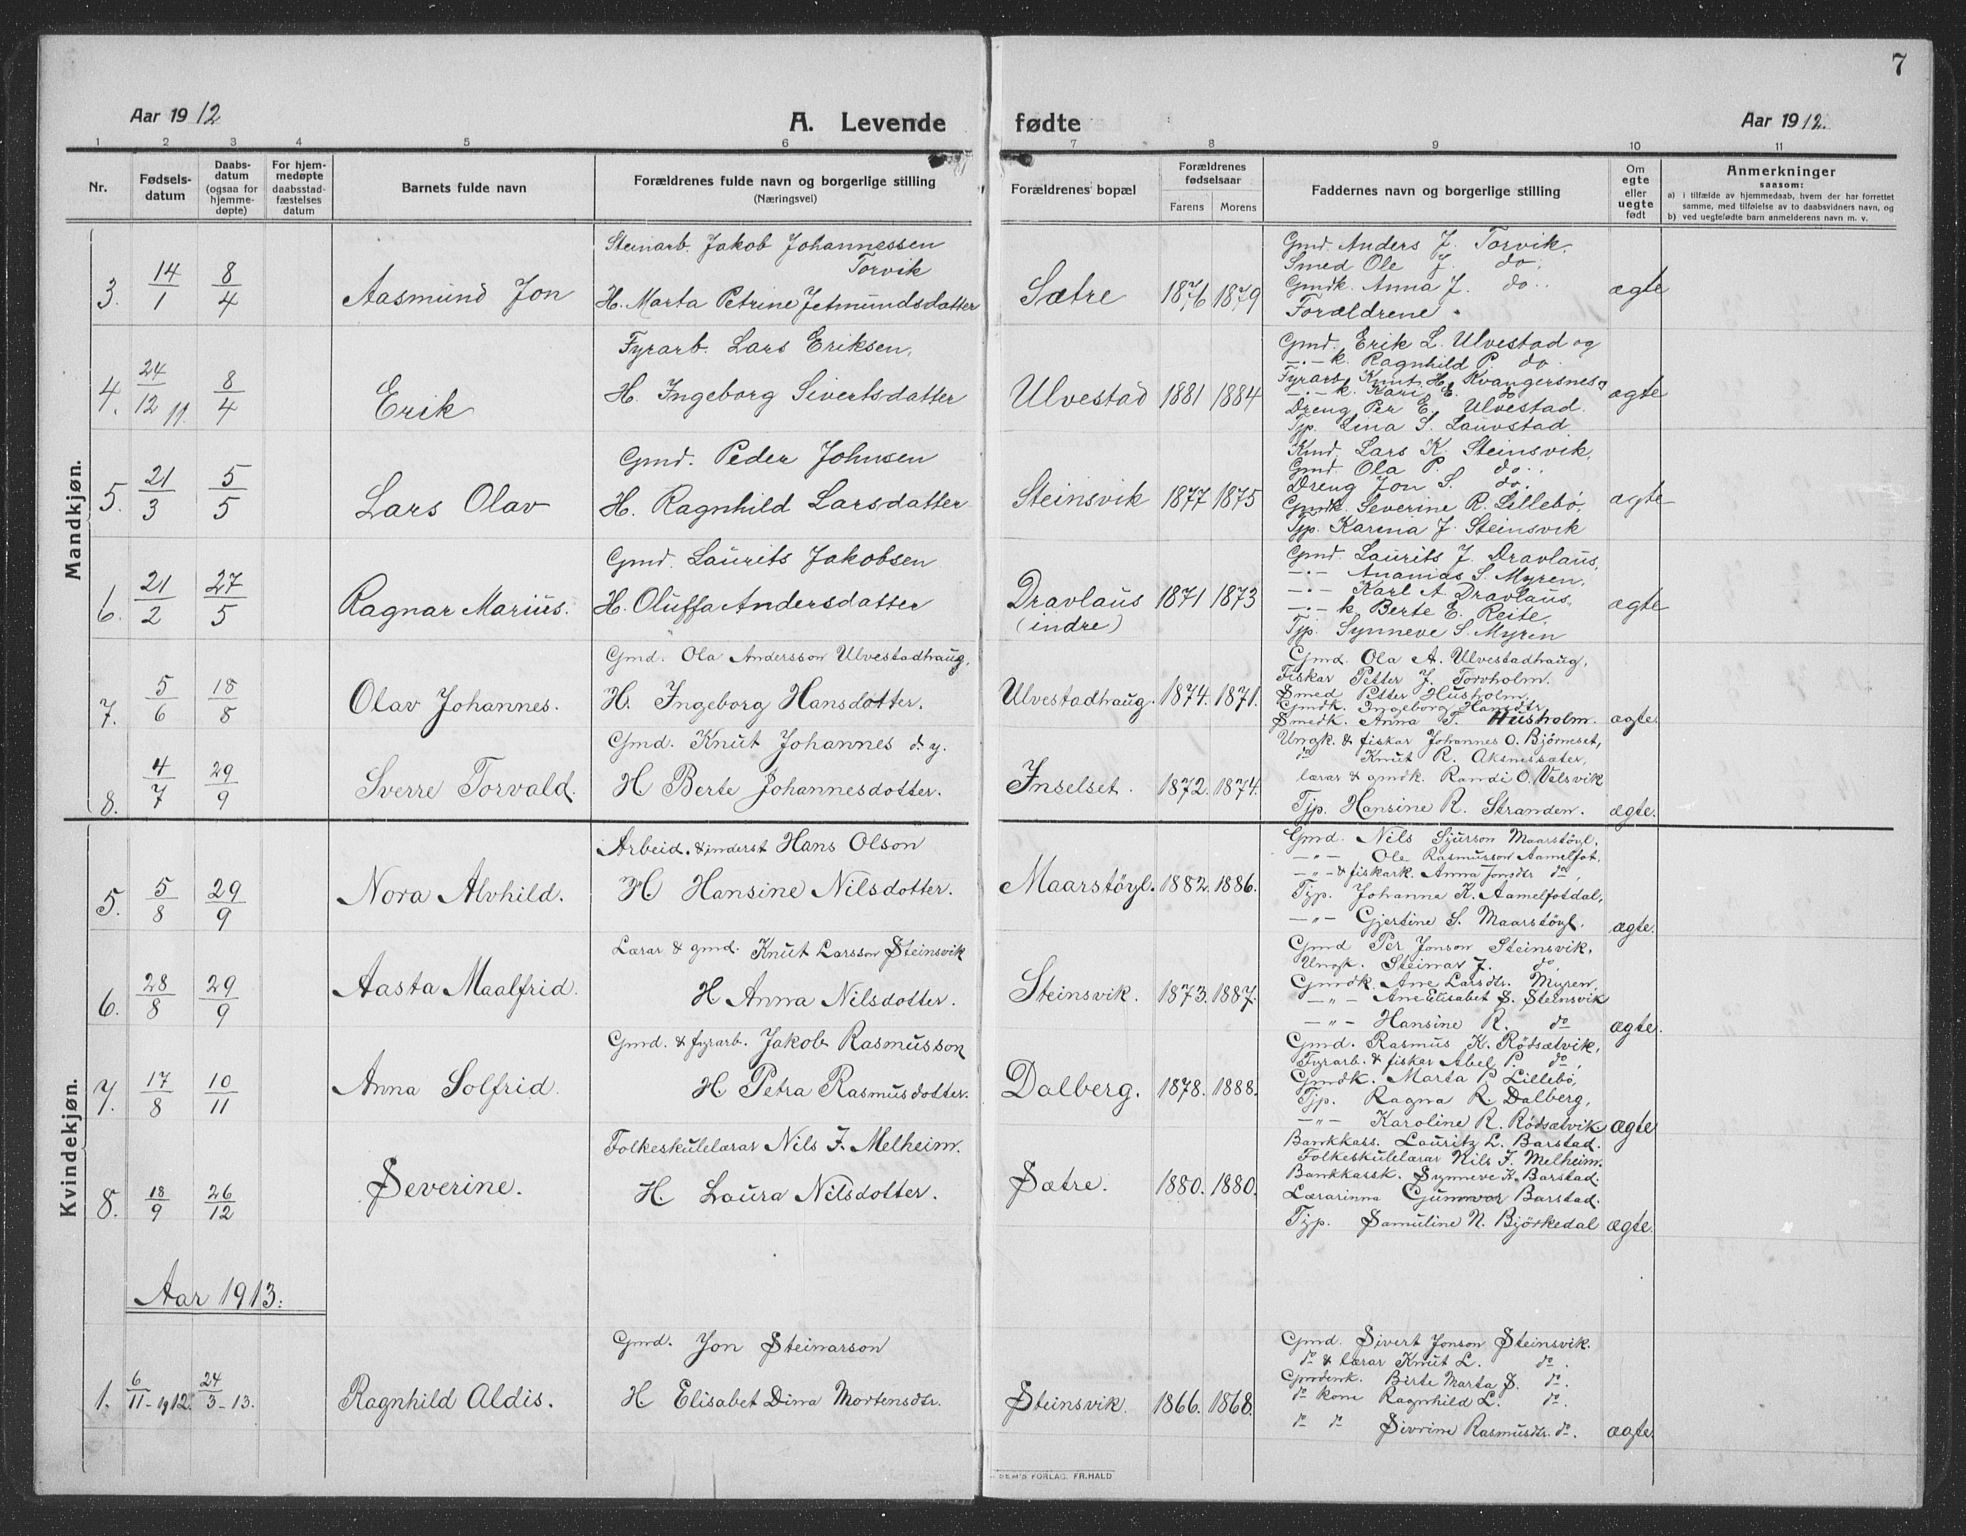 7
Aar 1912
A. Levende fødte
Aar 1912.
1 2 3 4 5 6 7 8 9 10 11
Nr.
Fødsels-
datum
Daabs-
datum
(ogsaa for
hjemme-
døpte)
For hjem-
medøpte
daabsstad-
fæstelses
datum
Barnets fulde navn
Forældrenes fulde navn og borgerlige stilling
(Næringsvei)
Forældrenes bopæl
Forældrenes
fødselsaar
Farens Morens
Faddernes navn og borgerlige stilling
Om
egte
eller
uegte
født
Anmerkninger
saasom:
a) i tilfælde av hjemmedaab, hvem der har forrettet
samme, med tilføielse av to daabsvidners navn, og
b) ved uegtefødte barn anmelderens navn m. v.
Mandkjøn.
3. 14/1 8/4 Aasmund Jon
Steinarb. Jakob Johannessen
Torvik
H. Marta Petrine Jetmundsdatter
Sætre 1876 1879
Gmd. Anders J. Torvik.
Smed Ole J. do.
Gmdk. Anna J. do.
Forældrene.
ægte
4. 24/12 11. 8/4 Erik
Fyrarb. Lars Eriksen,
H. Ingeborg Sivertsdatter
Ulvestad 1881 1884
Gmd. Erik L. Ulvestad og
-.- k. Ragnhild P. do
Fyrarb. Knut H. Kvangersnes
-.- k. Kari E. do
Dreng Per E. Ulvestad.
Tjp. Lina S. Lauvstad
ægte
5. 21/3 5/5 Lars Olav
Gmd. Peder Johnsen
H. Ragnhild Larsdatter
Steinsvik 1877 1875
Kmd. Lars K. Steinsvik,
Gmd. Ola P. do.
Dreng Jon S. do.
Gmdk. Severine R. Lillebø,
Tjp. Karena J. Steinsvik
ægte
6. 21/2 27/5 Ragnar Marius.
Gmd. Laurits Jakobsen
H. Oluffa Andersdatter
Dravlaus
(indre)
1871 1873
Gmd. Laurits J. Dravlaus,
-.- Ananias S. Myren,
-.- Karl A. Dravlaus,
-.- k Berte E. Reite,
Tjp. Synneve S. Myren
ægte
7. 5/6 18/8 Olav Johannes.
Gmd. Ola Andersson Ulvestadhaug,
H. Ingeborg Hansdotter.
Ulvestadhaug. 1874. 1871.
Gmd. Ola A. Ulvestadhaug,
Fiskar Petter J. Torvholm.
Smed Petter Husholm,
Gmdk. Ingeborg Hansdtr,
Smedk. Anna T. Husholm.
ægte.
8. 4/7 29/9 Sverre Torvald.
Gmd. Knut Johannes d. y.
H Berte Johannesdotter.
Inselset. 1872. 1874.
Ungk. & fiskar Johannes O. Bjørneset,
do Knut R. Aksnessæter,
lærar & gmdk. Randi O. Velsvik
Tjp. Hansine R. Stranden.
ægte.
Kvindekjøn.
5. 5/8 29/9 Nora Alvhild.
Arbeid. & inderst Hans Olson
H Hansine Nilsdotter.
Maarstøyl. 1882. 1886.
Gmd. Nils Sjurson Maarstøyl,
-"- Ole Rasmusson Aamelfot,
-"- & fiskark. Anna Jonsdtr do,
Tjp. Johanna K. Aamelfotdal,
-"- Gjertine S. Maarstøyl.
ægte.
6. 28/8 29/9 Aasta Maalfrid.
Lærar & gmd. Knut Larsson Steinsvik
H Anna Nilsdotter.
Steinsvik. 1873. 1887.
Gmd Per Jonson Steinsvik,
Ungk. Steinar J. do.
Gmdk. Ane Larsdtr. Myren,
-"- Ane Elisabet S. Steinsvik
-"- Hansine R. do
ægte.
7. 17/8 10/11 Anna Solfrid.
Gmd. & fyrarb. Jakob Rasmusson
H Petra Rasmusdotter.
Dalberg. 1878. 1888.
Gmd. Rasmus K. Rødsætvik,
Fyrarb. & fiskar Abel P. do,
Gmdk. Marta P. Lillebø,
Tjp. Ragna R. Dalberg,
-"- Karoline R. Rødsætvik
ægte
8. 18/9 26/12 Severine.
Folkeskulelærar Nils J. Melheim.
H. Laura Nilsdotter.
Sætre. 1880. 1880.
Bankkass. Lauritz L. Barstad.
Folkeskulelærar Nils J. Melheim.
Bankkassk. Synneve K. Barstad.
Lærarinna Gunnvor Barstad.
Tjp. Samuline N. Bjørkedal
ægte.
Aar 1913.
1. 6/11-1912. 24/3-13. Ragnhild Aldis.
Gmd. Jon Steinarson
H Elisabet Dina Mortensdtr.
Steinsvik. 1866. 1868.
Gmd. Sivert Jonson Steinsvik.
do & lærar Knut L. do.
Gmdenk. Birte Marta S. do.
do kone Ragnhild L. do.
do do Sivrine Rasmusdtr. do.
ægte.
DEM'S FORLAG, FR. HALD